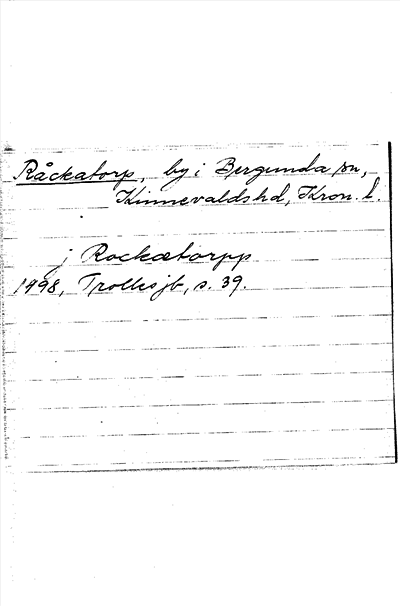 Råckatorp, by i Bergunda sn,
Kinnevalds hd, Kron. l.
j Rockætorpp
1498, Trollesjb, s. 39.